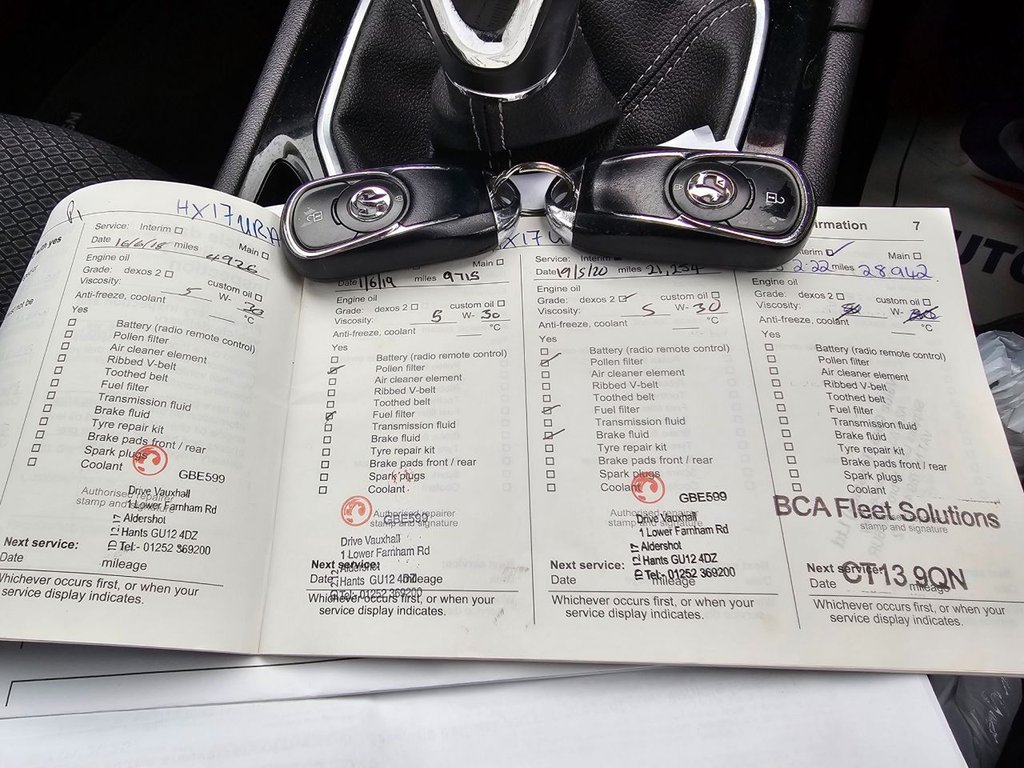 HX17URA
Service: Interim
Main
Date 16/6/18 miles 4926
Engine oil
Grade: dexos 2
custom oil
Viscosity: 5 W- 30
Anti-freeze, coolant °C
Yes
Battery (radio remote control)
Pollen filter
Air cleaner element
Ribbed V-belt
Toothed belt
Fuel filter
Transmission fluid
Brake fluid
Tyre repair kit
Brake pads front / rear
Spark plugs
Coolant
GBE599
Authorised repairer
stamp and signature
Drive Vauxhall
1 Lower Farnham Rd
Aldershot
Hants GU12 4DZ
Tel:- 01252 369200
Next service:
Date mileage
Whichever occurs first, or when your
service display indicates.
1/6/19 miles 9715
Engine oil
Grade: dexos 2
custom oil
Viscosity: 5 W- 30
Anti-freeze, coolant °C
Yes
Battery (radio remote control)
Pollen filter
Air cleaner element
Ribbed V-belt
Toothed belt
Fuel filter
Transmission fluid
Brake fluid
Tyre repair kit
Brake pads front / rear
Spark plugs
Coolant
Authorised repairer
GBE599
stamp and signature
Drive Vauxhall
1 Lower Farnham Rd
Aldershot
Hants GU12 4DZ
Tel:- 01252 369200
Next service:
Date mileage
Whichever occurs first, or when your
service display indicates.
Service: Interim
Date 19/5/20 miles 21,254
Engine oil
Grade: dexos 2
custom oil
Viscosity: 5 W- 30
Anti-freeze, coolant °C
Yes
Battery (radio remote control)
Pollen filter
Air cleaner element
Ribbed V-belt
Toothed belt
Fuel filter
Transmission fluid
Brake fluid
Tyre repair kit
Brake pads front / rear
Spark plugs
Coolant
GBE599
Authorised repairer
stamp and signature
Drive Vauxhall
1 Lower Farnham Rd
Aldershot
Hants GU12 4DZ
Tel:- 01252 369200
Next service:
Date mileage
Whichever occurs first, or when your
service display indicates.
7
Main
2.22 miles 28942
Engine oil
Grade: dexos 2
custom oil
Viscosity: W-
Anti-freeze, coolant °C
Yes
Battery (radio remote control)
Pollen filter
Air cleaner element
Ribbed V-belt
Toothed belt
Fuel filter
Transmission fluid
Brake fluid
Tyre repair kit
Brake pads front / rear
Spark plugs
Coolant
BCA Fleet Solutions
stamp and signature
Next service:
CT13 9QN
Date mileage
Whichever occurs first, or when your
service display indicates.